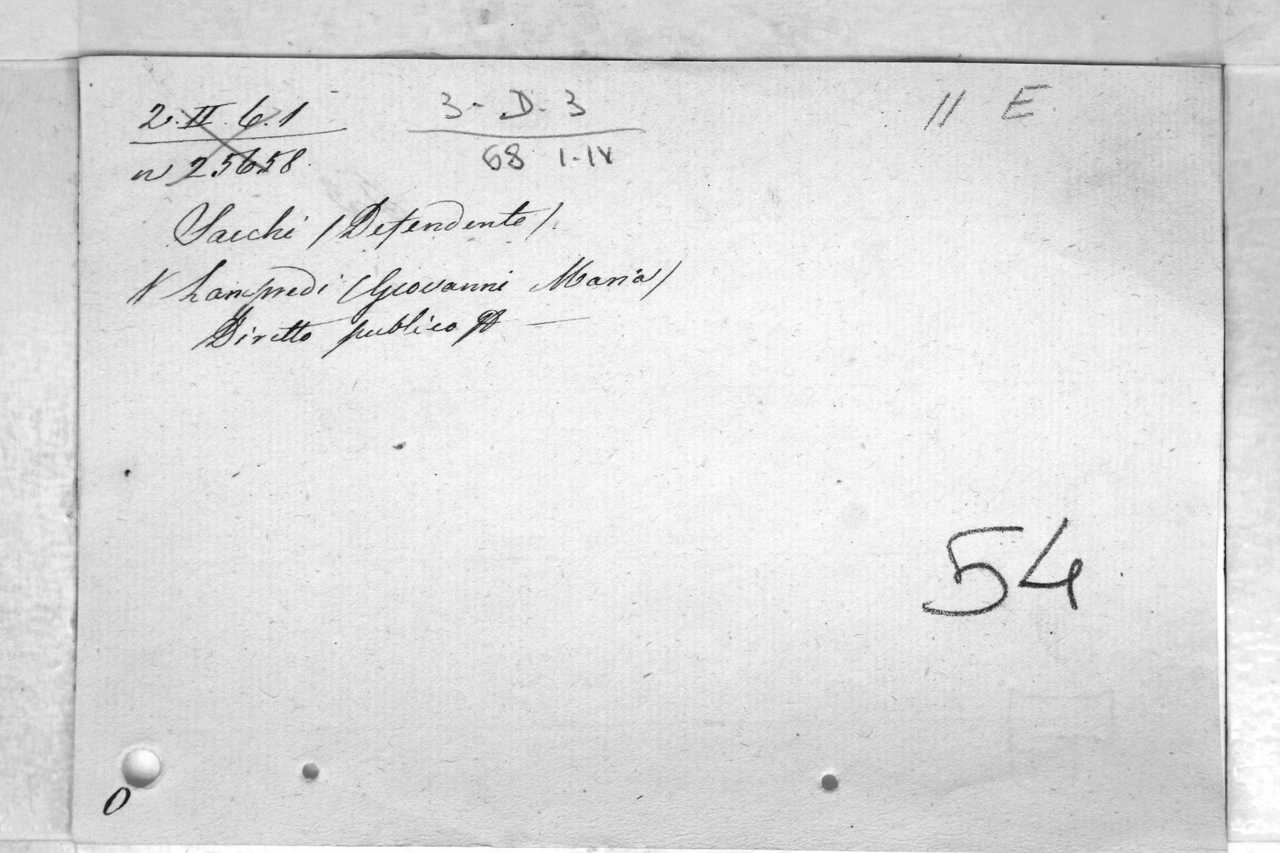 2. II. 6. 1
n 25658.
3 - D. 3
68 I-IV
11 E
Sacchi (Defendente).
V Lampredi (Giovanni Maria)
Diretto publico
54
0